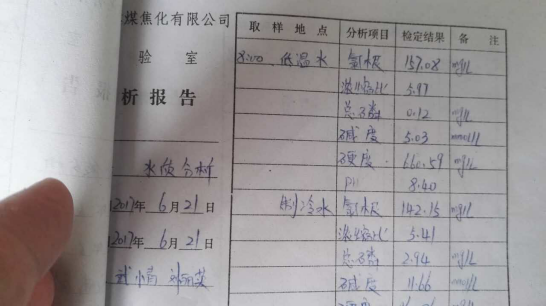 煤焦化有限公司
验 室
析报告
水质分析
2017年 6月21日
2017年 6月21日
取样地点 分析项目 检定结果 备 注
8:00 低温水 氯根 157.08 mg/L
浓缩比 5.97
总磷 0.12 mg/L
碱度 5.03 mmol/L
硬度 660.59 mg/L
PH 8.40
制冷水 氯根 142.15 mg/L
浓缩比 5.41
总磷 2.94 mg/L
碱度 11.66 mmol/L
硬度